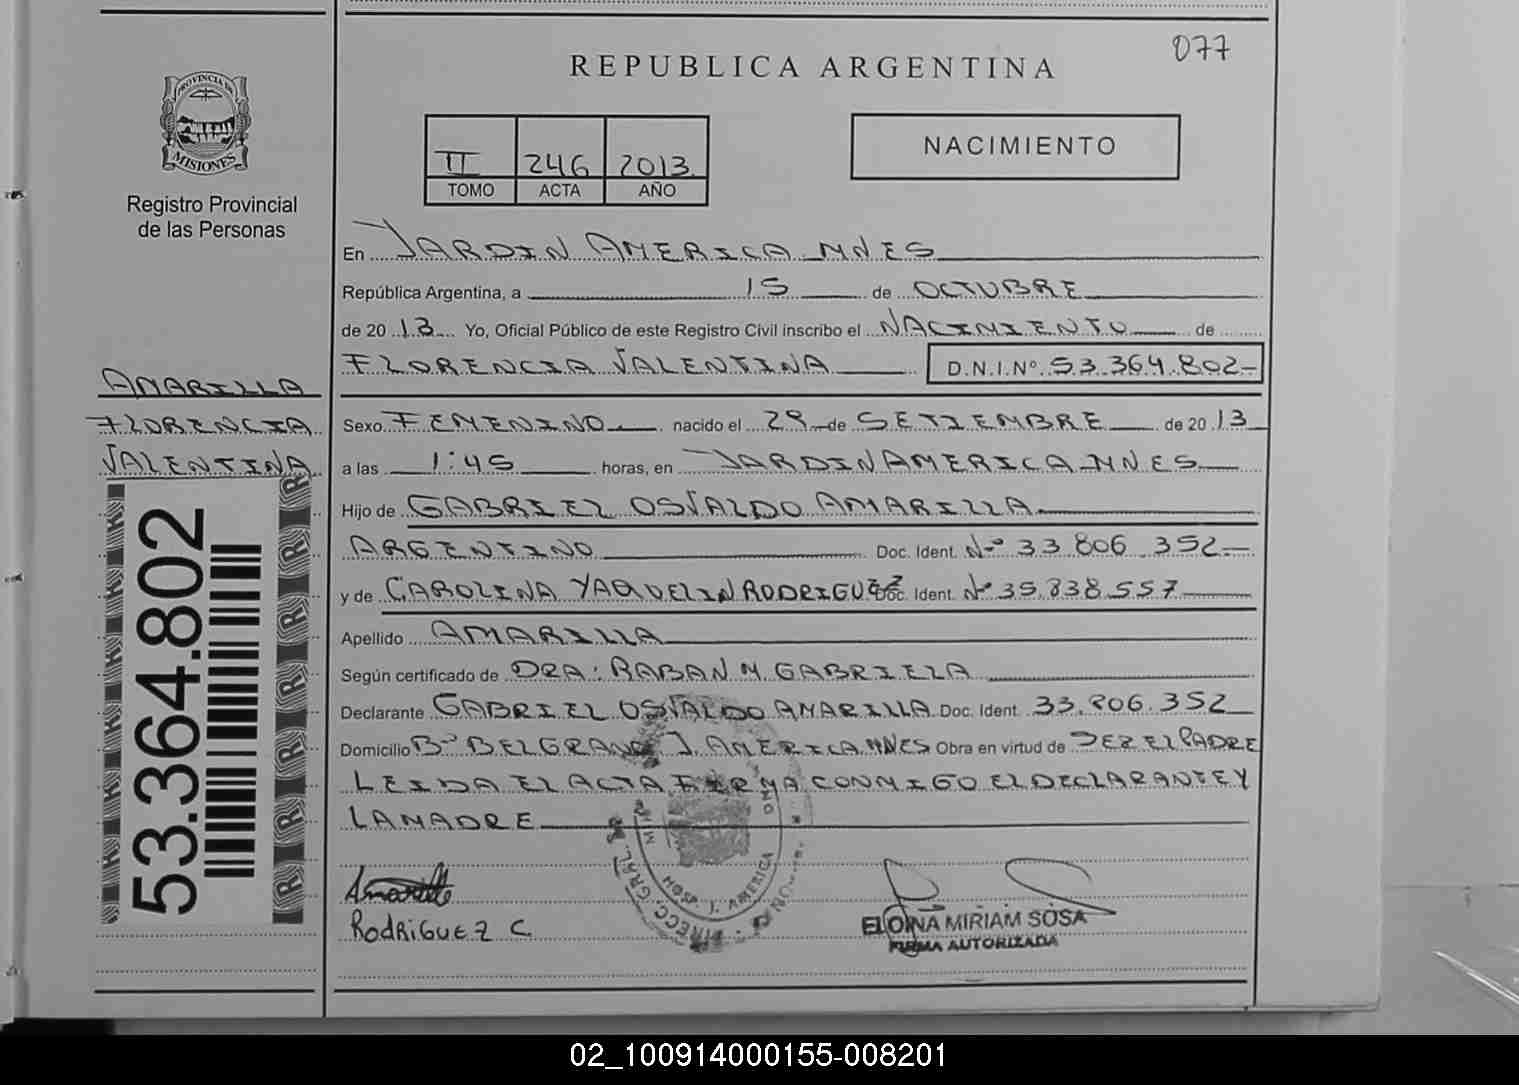 077
REPUBLICA ARGENTINA
PROVINCIA DE MISIONES
Registro Provincial
de las Personas
II 246 2013
TOMO ACTA AÑO
NACIMIENTO
En JARDIN AMERICA MNES
República Argentina, a 15 de OCTUBRE
de 2013 Yo, Oficial Público de este Registro Civil inscribo el NACIMIENTO de
FLORENCIA VALENTINA D.N.I.Nº 53.364.802-
AMARILLA
FLORENCIA
VALENTINA
53.364.802
Sexo FEMENINO nacido el 29 de SETIEMBRE de 2013
a las 1:45 horas, en JARDIN AMERICA MNES
Hijo de GABRIEL OSVALDO AMARILLA
ARGENTINO Doc. Ident. Nº 33.806.352
y de CAROLINA YAQUELIN RODRIGUEZ Doc. Ident. Nº 35.838.557
Apellido AMARILLA
Según certificado de DRA: RABAN M. GABRIELA
Declarante GABRIEL OSVALDO AMARILLA Doc. Ident. 33.806.352
Domicilio Bº BELGRANO J. AMERICA MNES Obra en virtud de SER EL PADRE
LEIDA EL ACTA FIRMA CONMIGO EL DECLARANTE Y
LA MADRE
Amarilla
RODRIGUEZ C
DIRECC. GRAL. DE
HOSP. J. AMERICA
ELOINA MIRIAM SOSA
FIRMA AUTORIZADA
02_100914000155-008201